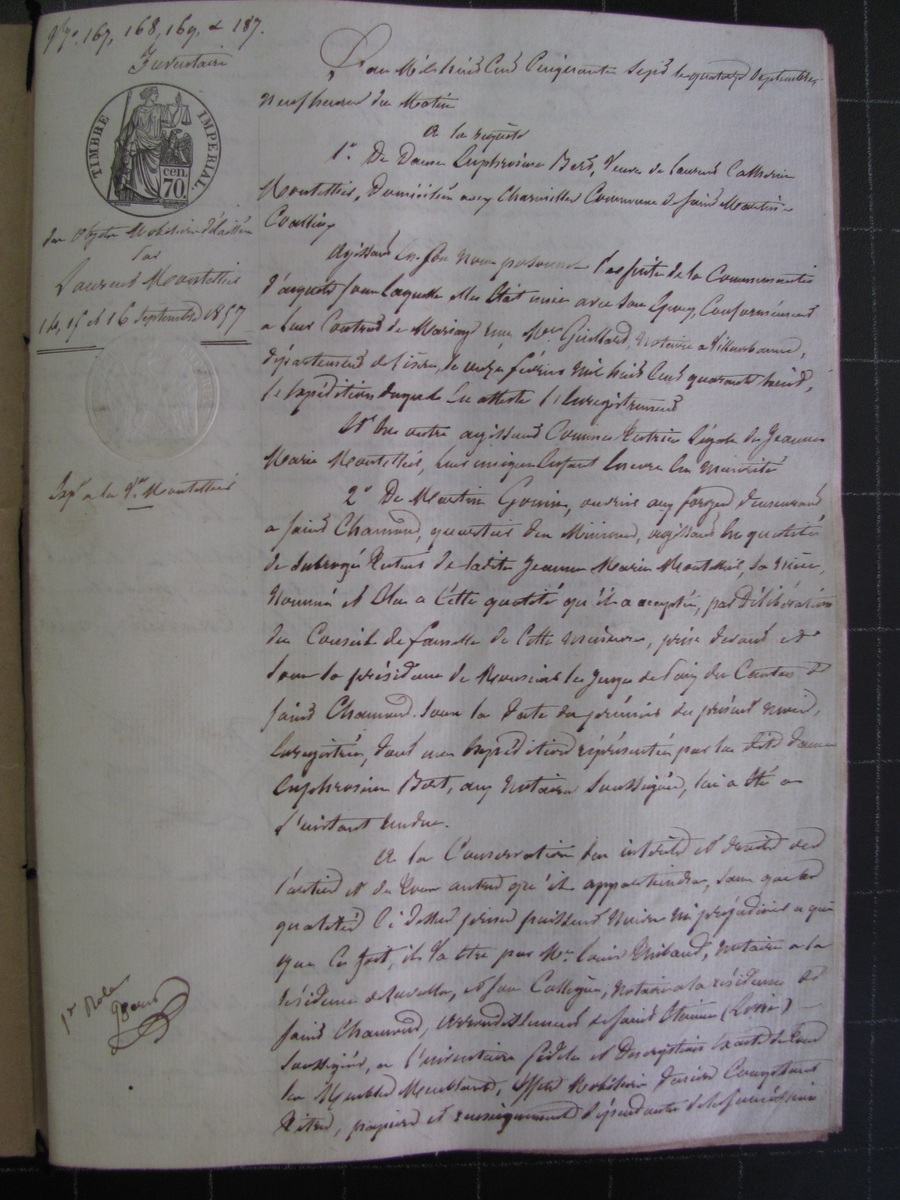 Nos 167, 168, 169, & 187.
Inventaire
TIMBRE IMPERIAL.
cen.
70.
des Objets Mobiliers délaissés
par
Laurent Montellier
14, 15 et 16 Septembre 1857
Expn a la Ve Montellier
1er Role
L'an Mil huit Cent Cinquante Sept le quatorze Septembre
neuf heures du Matin
A la requête
1o De Dame Euphrosine Bert, Veuve de Laurent Catherin
Montellier, Domiciliée aux Charvilles Commune de Saint Martin
Coailleux
Agissant En Son Nom personnel à cause de la Communauté
d'acquets pour laquelle elle était unie avec Son Epoux, Conformément
a leur Contrat de Mariage reçu Me Guillard, Notaire a Villeurbanne,
département de l'isère, le onze février mil huit Cent quarante huit,
l'expédition duquel En atteste l'Enregistrement
Et En outre agissant Comme Tutrice Légale de Jeanne
Marie Montellier, leur unique Enfant Encore En Minorité
2o De Martin Gonin, ouvrier aux forges demeurant
a Saint Chamond, quartier des Minimes, agissant En qualité
de subrogé Tuteur de ladite Jeanne Marie Montellier, Sa nièce,
Nommé et Elu a Cette qualité qu'il a acceptée, par Délibération
du Conseil de famille de Cette mineure, prise devant et
Sous la présidence de Monsieur le Juge de Paix du Canton de
Saint Chamond Sous la date du premier du présent mois,
Enregistrée, dont une Expédition représentée par la dite dame
Euphrosine Bert, aux Notaires Soussignés, lui a été a
l'instant rendue.
A la Conservation des intérêts et droits des
parties et de tous autres qu'il appartiendra, sans que les
qualités Ci dessus prises puissent Nuire ni préjudicier a qui
que Ce soit, il va être par Me Louis Thibaud, Notaire a la
résidence de Lavalla, et son Collègue, Notaire a la résidence de
Saint Chamond, arrondissement de Saint Etienne (Loire)
Soussignés, a l'inventaire fidèle et Description Exacte de tous
les Meubles Meublants, Effets Mobiliers Deniers Comptants
Titres, papiers et renseignements dépendants de la